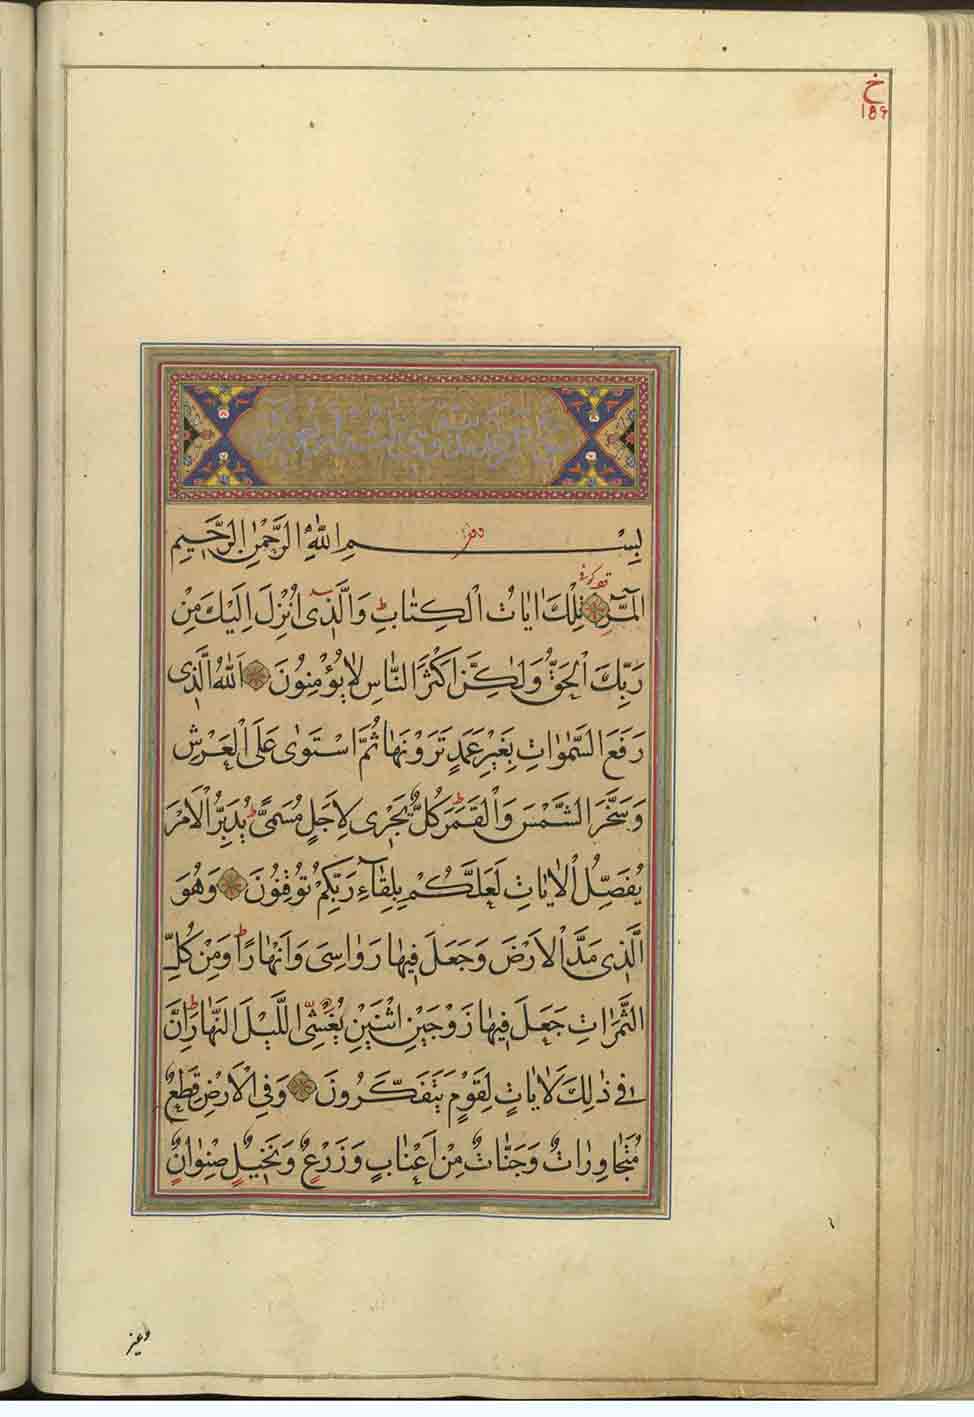 خ
١٨٩
بِسْمِ اللّٰهِ الرَّحْمٰنِ الرَّحيمِ
الٓمٓرٰ تِلْكَ اٰيَاتُ الْكِتَابِ وَالَّذٖى اُنْزِلَ اِلَيْكَ مِنْ
رَبِّكَ الْحَقُّ وَلٰكِنَّ اَكْثَرَ النَّاسِ لَا يُؤْمِنُونَ اَللّٰهُ الَّذٖى
رَفَعَ السَّمٰوَاتِ بِغَيْرِ عَمَدٍ تَرَوْنَهَا ثُمَّ اسْتَوٰى عَلَى الْعَرْشِ
وَسَخَّرَ الشَّمْسَ وَالْقَمَرَ كُلٌّ يَجْرٖى لِاَجَلٍ مُسَمًّى يُدَبِّرُ الْاَمْرَ
يُفَصِّلُ الْاٰيَاتِ لَعَلَّكُمْ بِلِقَآءِ رَبِّكُمْ تُوقِنُونَ وَهُوَ
الَّذٖى مَدَّ الْاَرْضَ وَجَعَلَ فٖيهَا رَوَاسِىَ وَاَنْهَارًا وَمِنْ كُلِّ
الثَّمَرَاتِ جَعَلَ فٖيهَا زَوْجَيْنِ اثْنَيْنِ يُغْشِى اللَّيْلَ النَّهَارَ اِنَّ
فٖى ذٰلِكَ لَاٰيَاتٍ لِقَوْمٍ يَتَفَكَّرُونَ وَفِى الْاَرْضِ قِطَعٌ
مُتَجَاوِرَاتٌ وَجَنَّاتٌ مِنْ اَعْنَابٍ وَزَرْعٌ وَنَخٖيلٌ صِنْوَانٌ
وغير